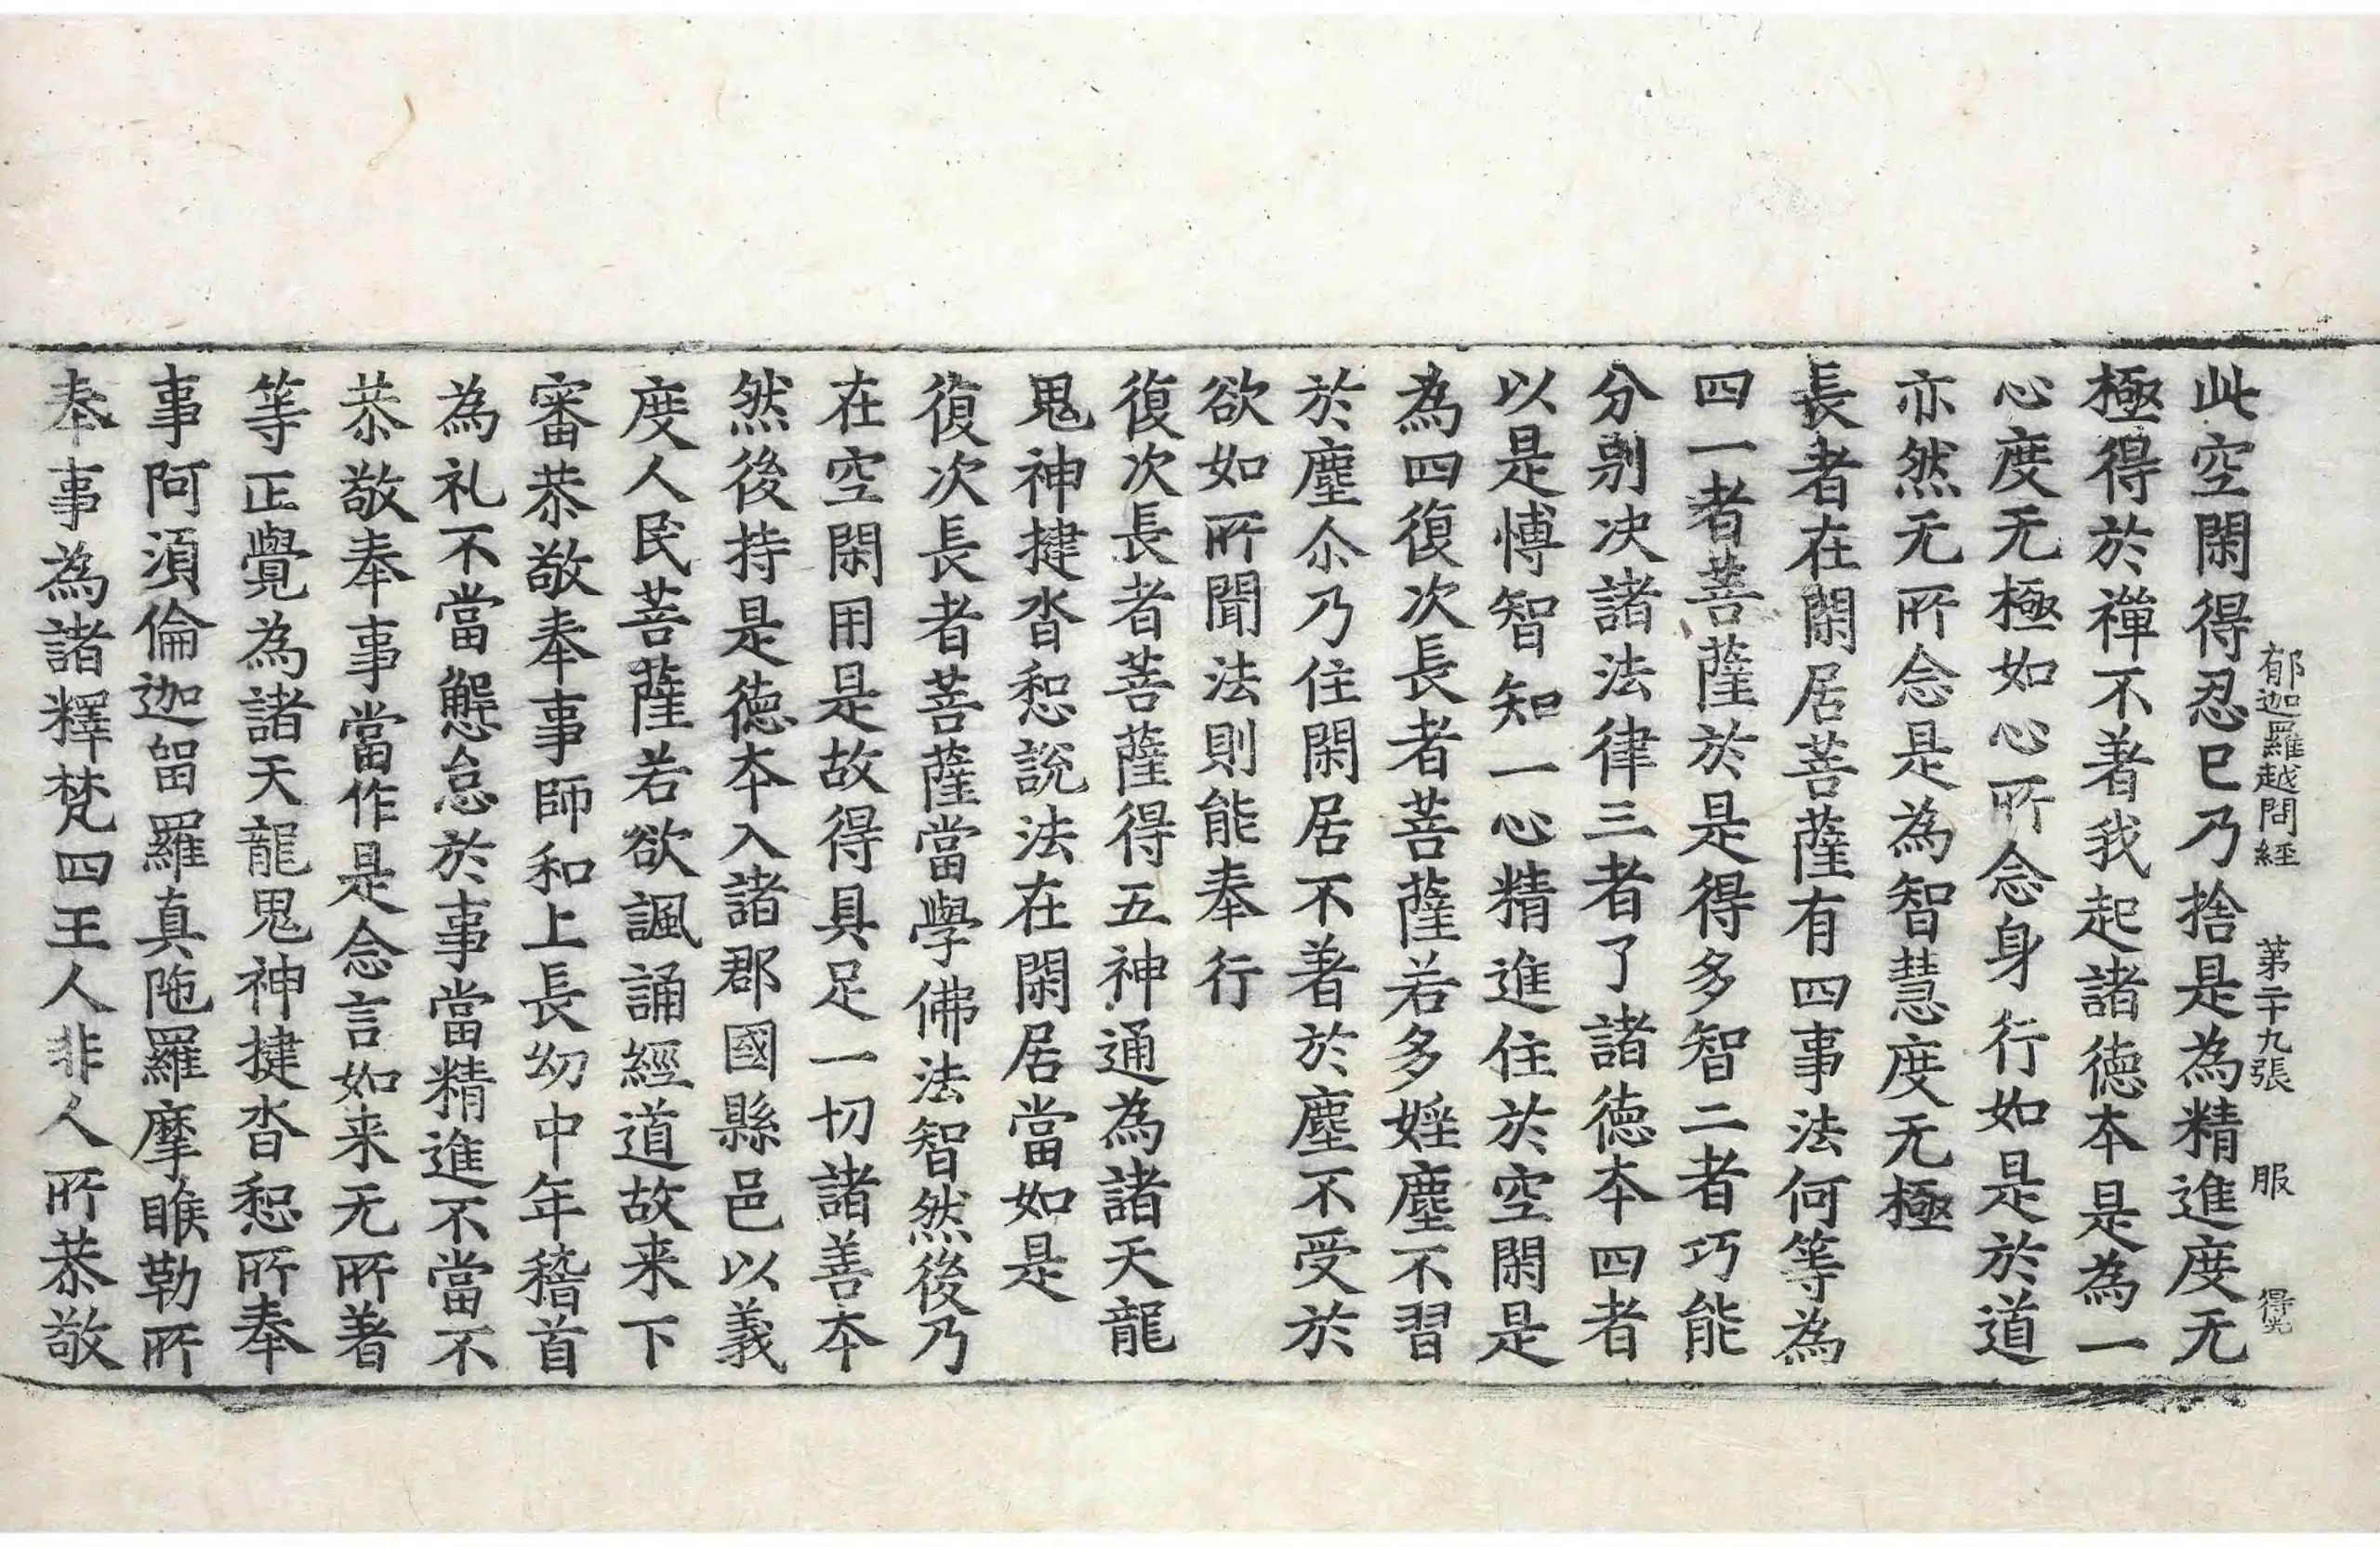 郁迦羅越問經 第二十九張 服 得光
此空閑得忍已乃捨是為精進度无
極得於禪不著我起諸德本是為一
心度无極如心所念身行如是於道
亦然无所念是為智慧度无極
長者在閑居菩薩有四事法何等為
四一者菩薩於是得多智二者巧能
分別决諸法律三者了諸德本四者
以是愽智知一心精進住於空閑是
為四復次長者菩薩若多婬塵不習
於塵尒乃住閑居不著於塵不受於
欲如所聞法則能奉行
復次長者菩薩得五神通為諸天龍
鬼神揵沓惒說法在閑居當如是
復次長者菩薩當學佛法智然後乃
在空閑用是故得具足一切諸善本
然後持是德本入諸郡國縣邑以義
度人民菩薩若欲諷誦經道故来下
審恭敬奉事師和上長幼中年稽首
為礼不當懈怠於事當精進不當不
恭敬奉事當作是念言如来无所著
等正覺為諸天龍鬼神揵沓惒所奉
事阿須倫迦留羅真陁羅摩睺勒所
奉事為諸釋梵四王人非人所恭敬